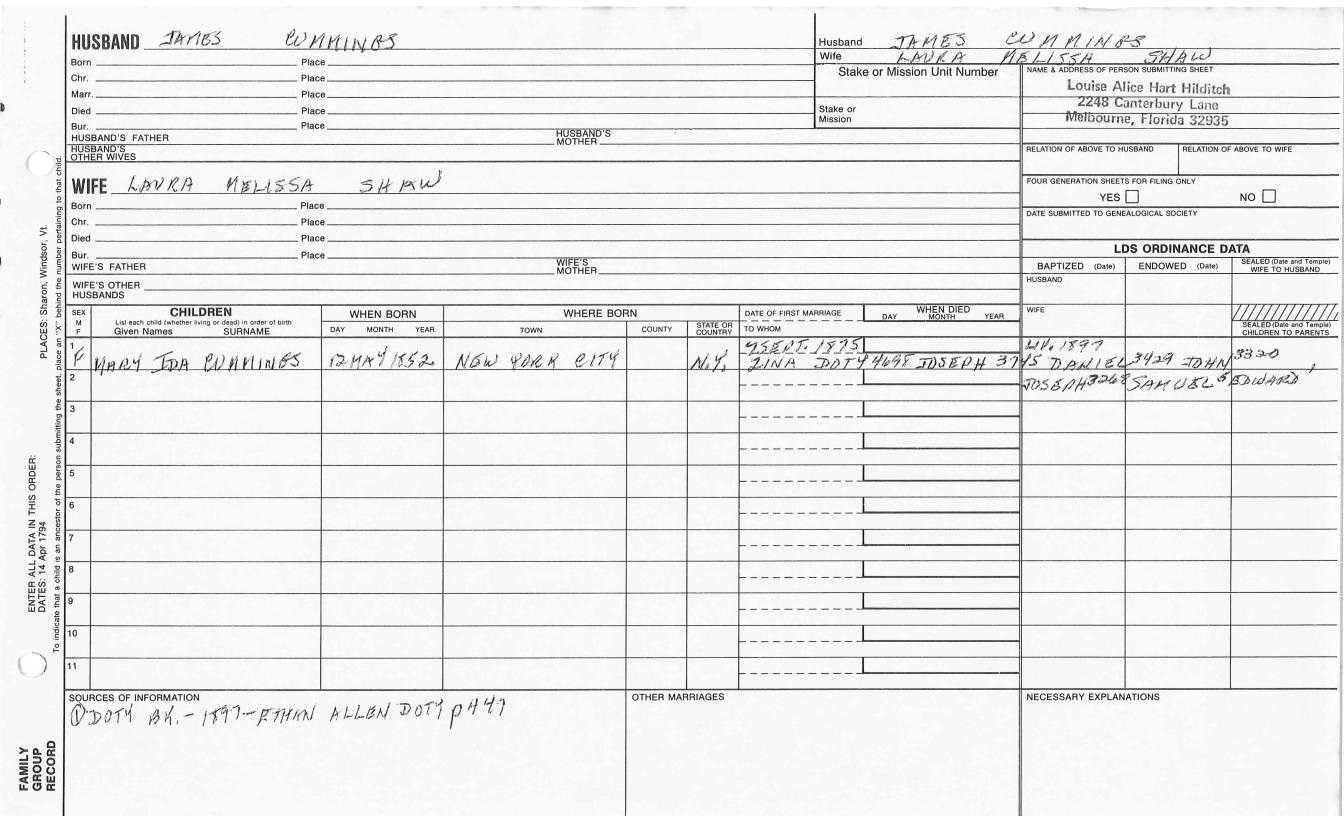 HUSBAND JAMES CUMMINGS
Born Place
Chr. Place
Marr. Place
Died Place
Bur. Place
HUSBAND'S FATHER HUSBAND'S MOTHER
HUSBAND'S OTHER WIVES
Husband JAMES CUMMINGS
Wife LAURA MELISSA SHAW
Stake or Mission Unit Number
Stake or Mission
NAME & ADDRESS OF PERSON SUBMITTING SHEET
Louise Alice Hart Hilditch
2248 Canterbury Lane
Melbourne, Florida 32935
RELATION OF ABOVE TO HUSBAND RELATION OF ABOVE TO WIFE
FOUR GENERATION SHEETS FOR FILING ONLY
YES NO
DATE SUBMITTED TO GENEALOGICAL SOCIETY
WIFE LAURA MELISSA SHAW
Born Place
Chr. Place
Died Place
Bur. Place
WIFE'S FATHER WIFE'S MOTHER
WIFE'S OTHER HUSBANDS
LDS ORDINANCE DATA
BAPTIZED (Date) ENDOWED (Date) SEALED (Date and Temple) WIFE TO HUSBAND
HUSBAND
WIFE
SEALED (Date and Temple) CHILDREN TO PARENTS
SEX M F
CHILDREN
List each child (whether living or dead) in order of birth
Given Names SURNAME
WHEN BORN
DAY MONTH YEAR
WHERE BORN
TOWN COUNTY STATE OR COUNTRY
DATE OF FIRST MARRIAGE
TO WHOM
WHEN DIED
DAY MONTH YEAR
1 F MARY IDA CUMMINGS 12 MAY 1852 NEW YORK CITY N.Y. 9 SEPT. 1875 LIV. 1897
ZINA DOTY 4698 JOSEPH 3745 DANIEL 3429 JOHN 3320,
JOSEPH 3268 SAMUEL 5 EDWARD
2
3
4
5
6
7
8
9
10
11
SOURCES OF INFORMATION
① DOTY BK.-1897-ETHAN ALLEN DOTY p447
OTHER MARRIAGES
NECESSARY EXPLANATIONS
PLACES: Sharon, Windsor, Vt.
ENTER ALL DATA IN THIS ORDER:
DATES: 14 Apr 1794
To indicate that a child is an ancestor of the person submitting the sheet, place an "X" behind the number pertaining to that child.
FAMILY
GROUP
RECORD